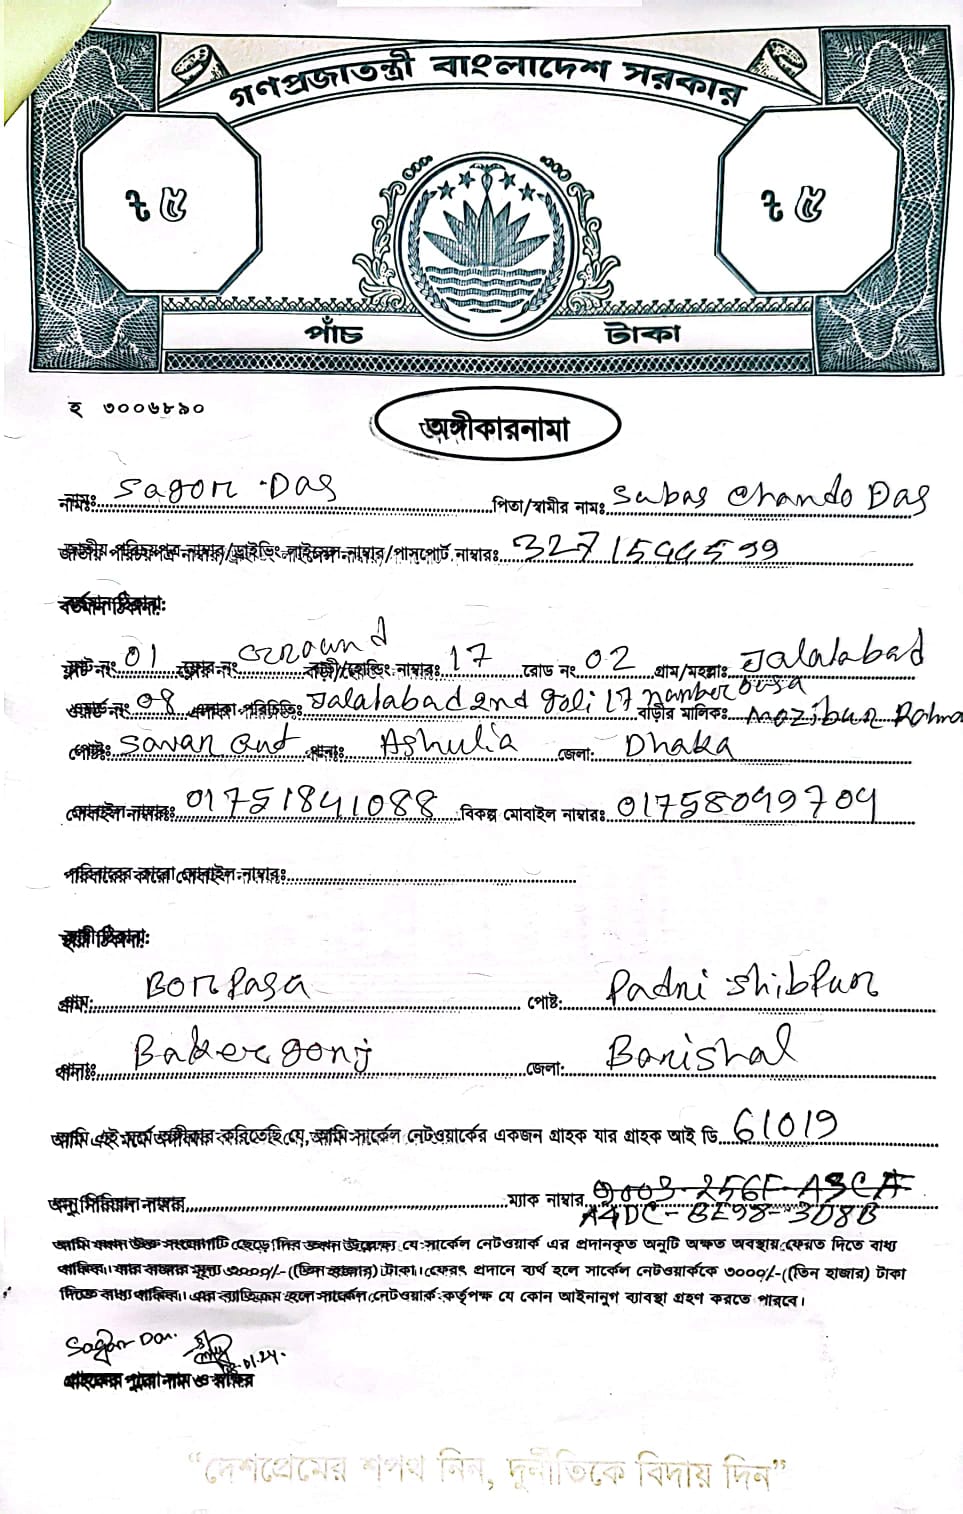 গণপ্রজাতন্ত্রী বাংলাদেশ সরকার
৳ ৫ ৳ ৫
পাঁচ টাকা
হ ৩০০৬৮৯০
অঙ্গীকারনামা
নামঃ Sagor Das পিতা/স্বামীর নামঃ Subas Chando Das
জাতীয় পরিচয়পত্র নাম্বার/ড্রাইভিং লাইসেন্স নাম্বার/পাসপোর্ট নাম্বারঃ 3271544599
বর্তমান ঠিকানা:
ফ্লাট নং 01 ফ্লোর নং Ground বাড়ী/হোল্ডিং নাম্বারঃ 17 রোড নং 02 গ্রাম/মহল্লাঃ Jalalabad
ওয়ার্ড নং 08 এলাকা পরিচিতিঃ Jalalabad 2nd goli 17 number basa বাড়ীর মালিকঃ Mozibur Rahma
পোষ্টঃ Savar Cant থানাঃ Ashulia জেলা: Dhaka
মোবাইল নাম্বারঃ 01751841088 বিকল্প মোবাইল নাম্বারঃ 01758049704
পরিবারের কারো মোবাইল নাম্বারঃ
স্থায়ী ঠিকানা:
গ্রাম: Borpasa পোষ্ট: Padri Shibpur
থানাঃ Bakergonj জেলা: Barishal
আমি এই মর্মে অঙ্গীকার করিতেছি যে, আমি সার্কেল নেটওয়ার্কের একজন গ্রাহক যার গ্রাহক আই ডি 61019
অনু সিরিয়াল নাম্বার ম্যাক নাম্বার
A4DC-BE98-3D8B
আমি যখন উক্ত সংযোগটি ছেড়ে দিব তখন উল্লেখ্য যে সার্কেল নেটওয়ার্ক এর প্রদানকৃত অনুটি অক্ষত অবস্থায় ফেরত দিতে বাধ্য
থাকিব। যার বাজার মূল্য ৩০০০/-(তিন হাজার) টাকা। ফেরৎ প্রদানে ব্যর্থ হলে সার্কেল নেটওয়ার্ককে ৩০০০/-(তিন হাজার) টাকা
দিতে বাধ্য থাকিব। এর ব্যতিক্রম হলে সার্কেল নেটওয়ার্ক কর্তৃপক্ষ যে কোন আইনানুগ ব্যবস্থা গ্রহণ করতে পারবে।
Sagor Das. 01.24.
গ্রাহকের পুরো নাম ও স্বাক্ষর
“দেশপ্রেমের শপথ নিন, দুর্নীতিকে বিদায় দিন”